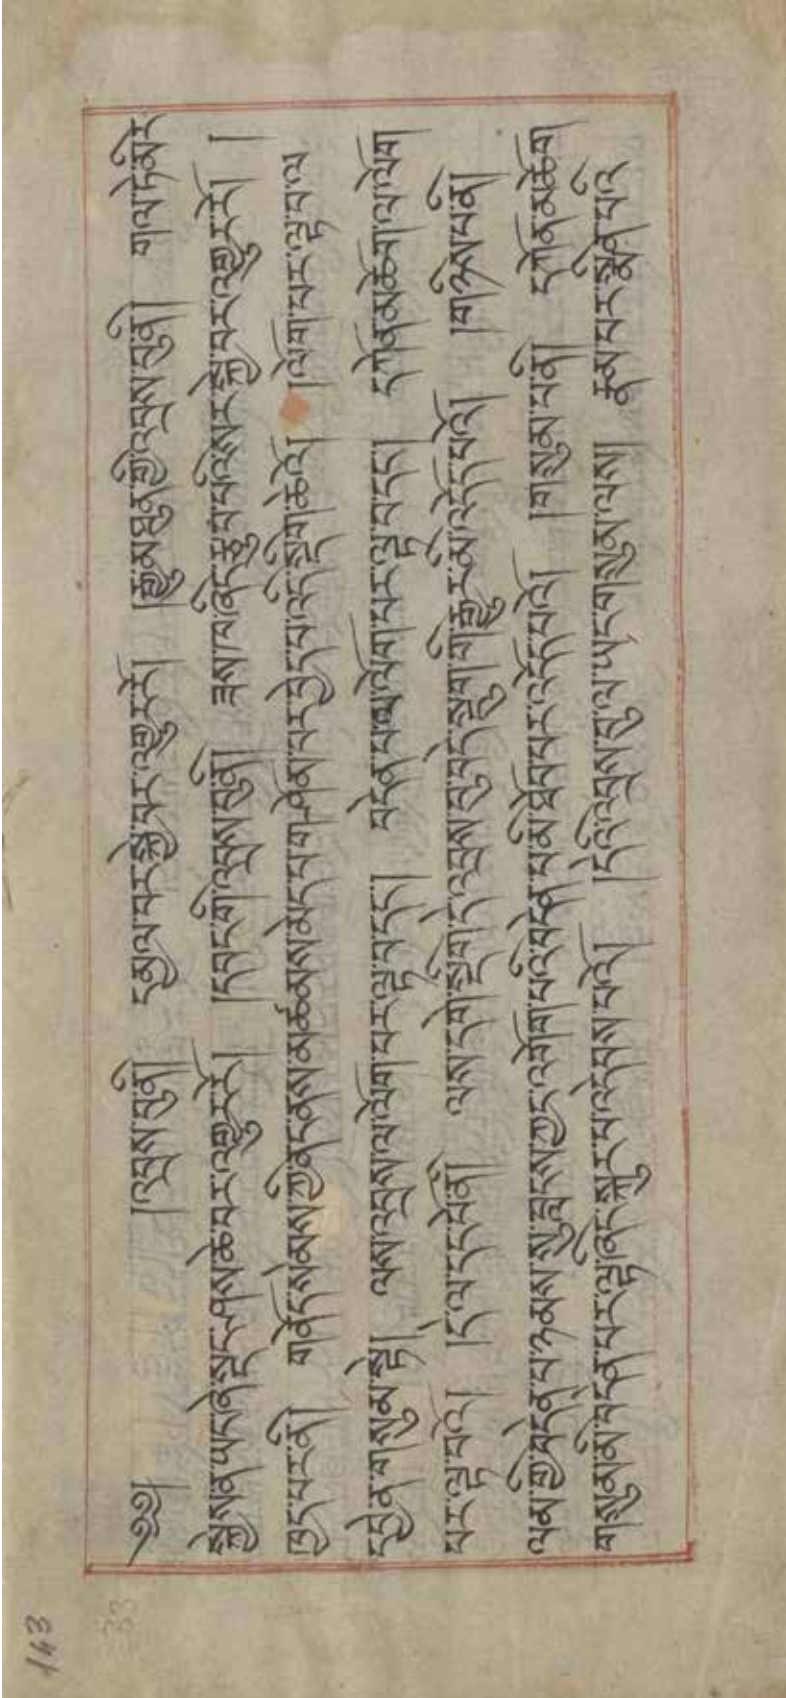 ༄༅། །འབྲས་བུ་ནི། དམྱལ་བར་སྐྱེ་བར་འགྱུར་རོ། །རྒྱུ་མཐུན་གྱི་འབྲས་བུ་ནི། གལ་ཏེ་མིར་
སྐྱེས་ན་ཡང་ཞེ་སྡང་ཤས་ཆེ་བར་འགྱུར་རོ། །དབང་གི་འབྲས་བུ་ནི། རྩུབ་པའི་སར་སྐྱེ་བར་འགྱུར་རོ། །
ཁྱད་པར་ནི། གནོད་སེམས་ཀྱི་ནང་ནས་མཚམས་མེད་པ་བྱེད་པ་ནི་སྡིག་ཆེའོ། །ལོག་པར་ལྟ་བ་ལ་
དབྱེ་ན་གསུམ་སྟེ། ལས་འབྲས་ལ་ལོག་པར་ལྟ་བ་དང་། བདེན་པ་ལ་ལོག་པར་ལྟ་བ་དང་། དཀོན་མཆོག་ལ་ལོག་
པར་ལྟ་བའོ། །དེ་ལ་དང་པོ་ནི། ལས་དགེ་སྡིག་དེ་འབྲས་བུ་བདེ་སྡུག་གི་རྒྱུར་མི་འདོད་པའོ། །གཉིས་པ་ནི།
ལམ་གྱི་བདེན་པ་ཉམས་སུ་བླངས་ཀྱང་འགོག་པའི་བདེན་པ་མི་ཐོབ་པར་འདོད་པའོ། །གསུམ་པ་ནི། དཀོན་མཆོག་
གསུམ་མི་བདེན་པར་ལྟ་ཞིང་སྐུར་པ་འདེབས་པའོ། །དེའི་འབྲས་བུ་ལ་ཡང་གསུམ་ལས། རྣམ་པར་སྨིན་པའི་
143
33